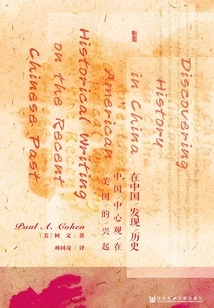 Discovering
History
in China
American
Historical Writing
on the Recent
Chinese Past
在中国发现历史
中国中心观在
美国的兴起
Paul A. Cohen
〔美〕柯文 著
林同奇 译
社会科学文献出版社